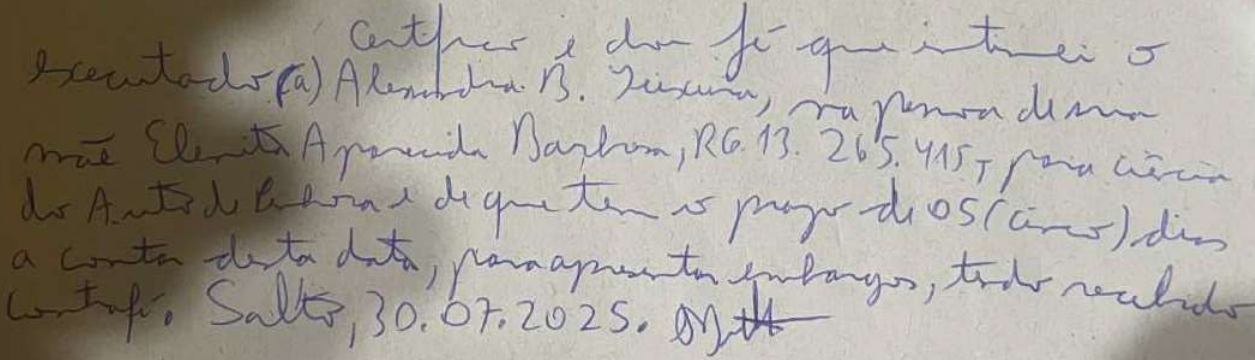 Certifico e dou fé que intimei o
executado(a) Alexandra B. Teixeira, na pessoa de sua
mãe Elenita Aparecida Barbosa, RG. 13.265.415, para ciência
do Auto de Penhora e de que tem o prazo de 05 (cinco) dias
a contar desta data, para apresentar embargos, tendo recebido
contrafé. Salto, 30.07.2025.